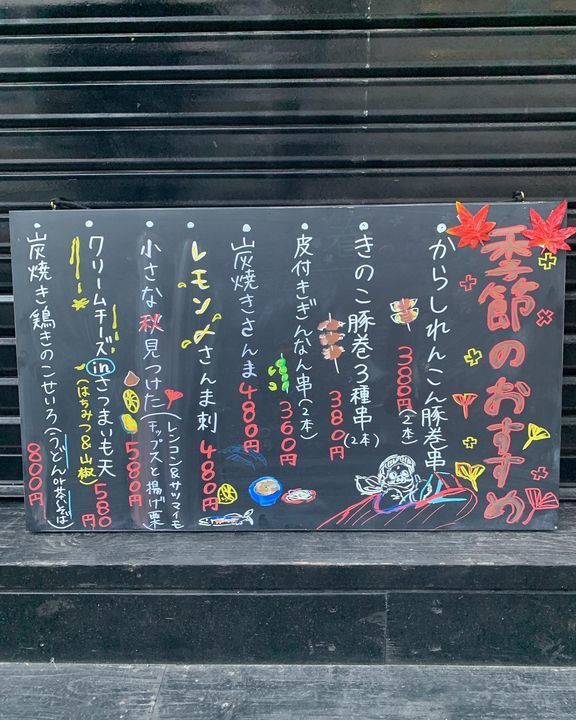 季節のおすすめ
・からしれんこん豚巻串
380円(2本)
・きのこ豚巻3種串(2本)
380円
・皮付きぎんなん串(2本)
360円
・炭焼きさんま
480円
・レモン〆さんま刺
480円
・小さな秋見つけた(レンコン&サツマイモ
チップスと揚げ栗)
580円
・クリームチーズinさつまいも天
(はちみつ&山椒)
580円
・炭焼き鶏きのこせいろ(うどんor茶そば)
800円